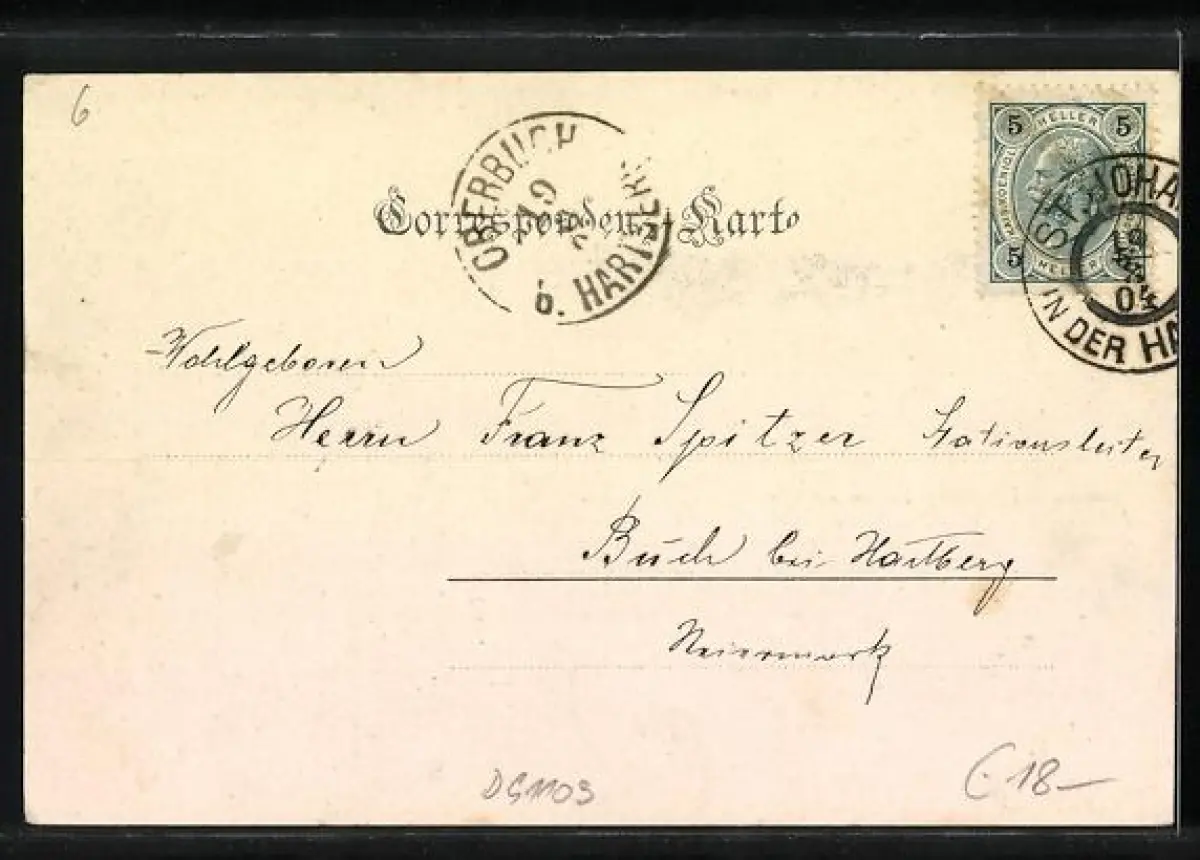 6
5 HELLER 5
5 HELLER
ST. JOHA
19
5
04
IN DER HA
OBERBUCH
19
b. HARTBERG
Correspondenz-Karte
Wohlgeboren
Herrn Franz Spitzer Stationsleiter
Buch bei Hartberg
Steiermark
DG1103
18-